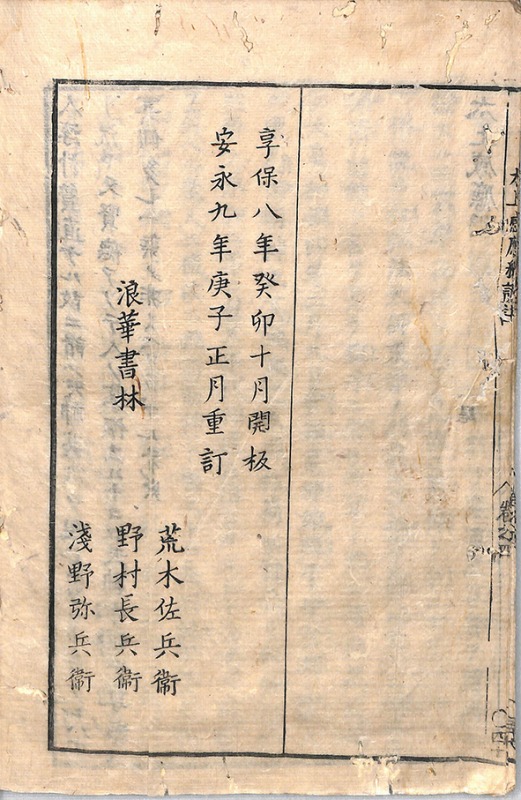 享保八年癸卯十月開板
安永九年庚子正月重訂
浪華書林
荒木佐兵衞
野村長兵衞
淺野弥兵衞